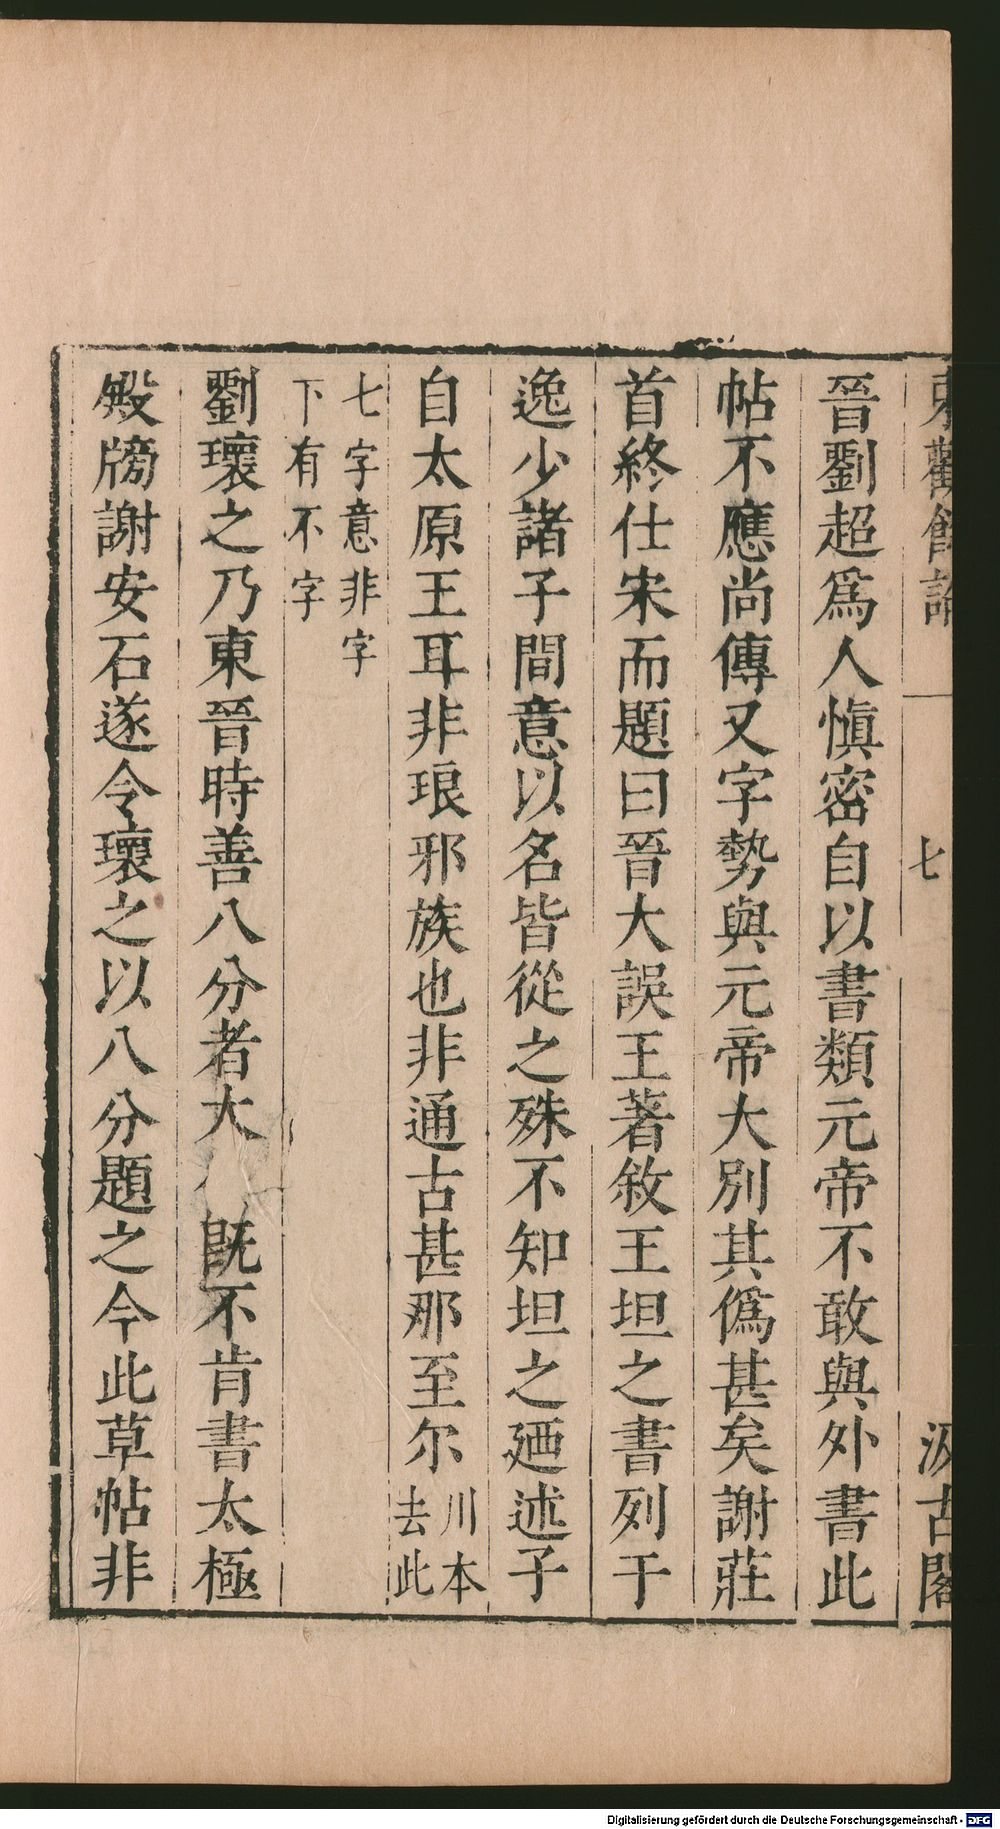 東觀餘論 七 汲古閣
晉劉超爲人愼密自以書類元帝不敢與外書此
帖不應尚傳又字勢與元帝大別其僞甚矣謝莊
首終仕宋而題曰晉大誤王著敘王坦之書列于
逸少諸子間意以名皆從之殊不知坦之廼述子
自太原王耳非琅邪族也非通古甚那至尔川本去此
七字意非字下有不字
劉瓌之乃東晉時善八分者大 旣不肯書太極
殿牓謝安石遂令瓌之以八分題之今此草帖非
Digitalisierung gefördert durch die Deutsche Forschungsgemeinschaft - DFG